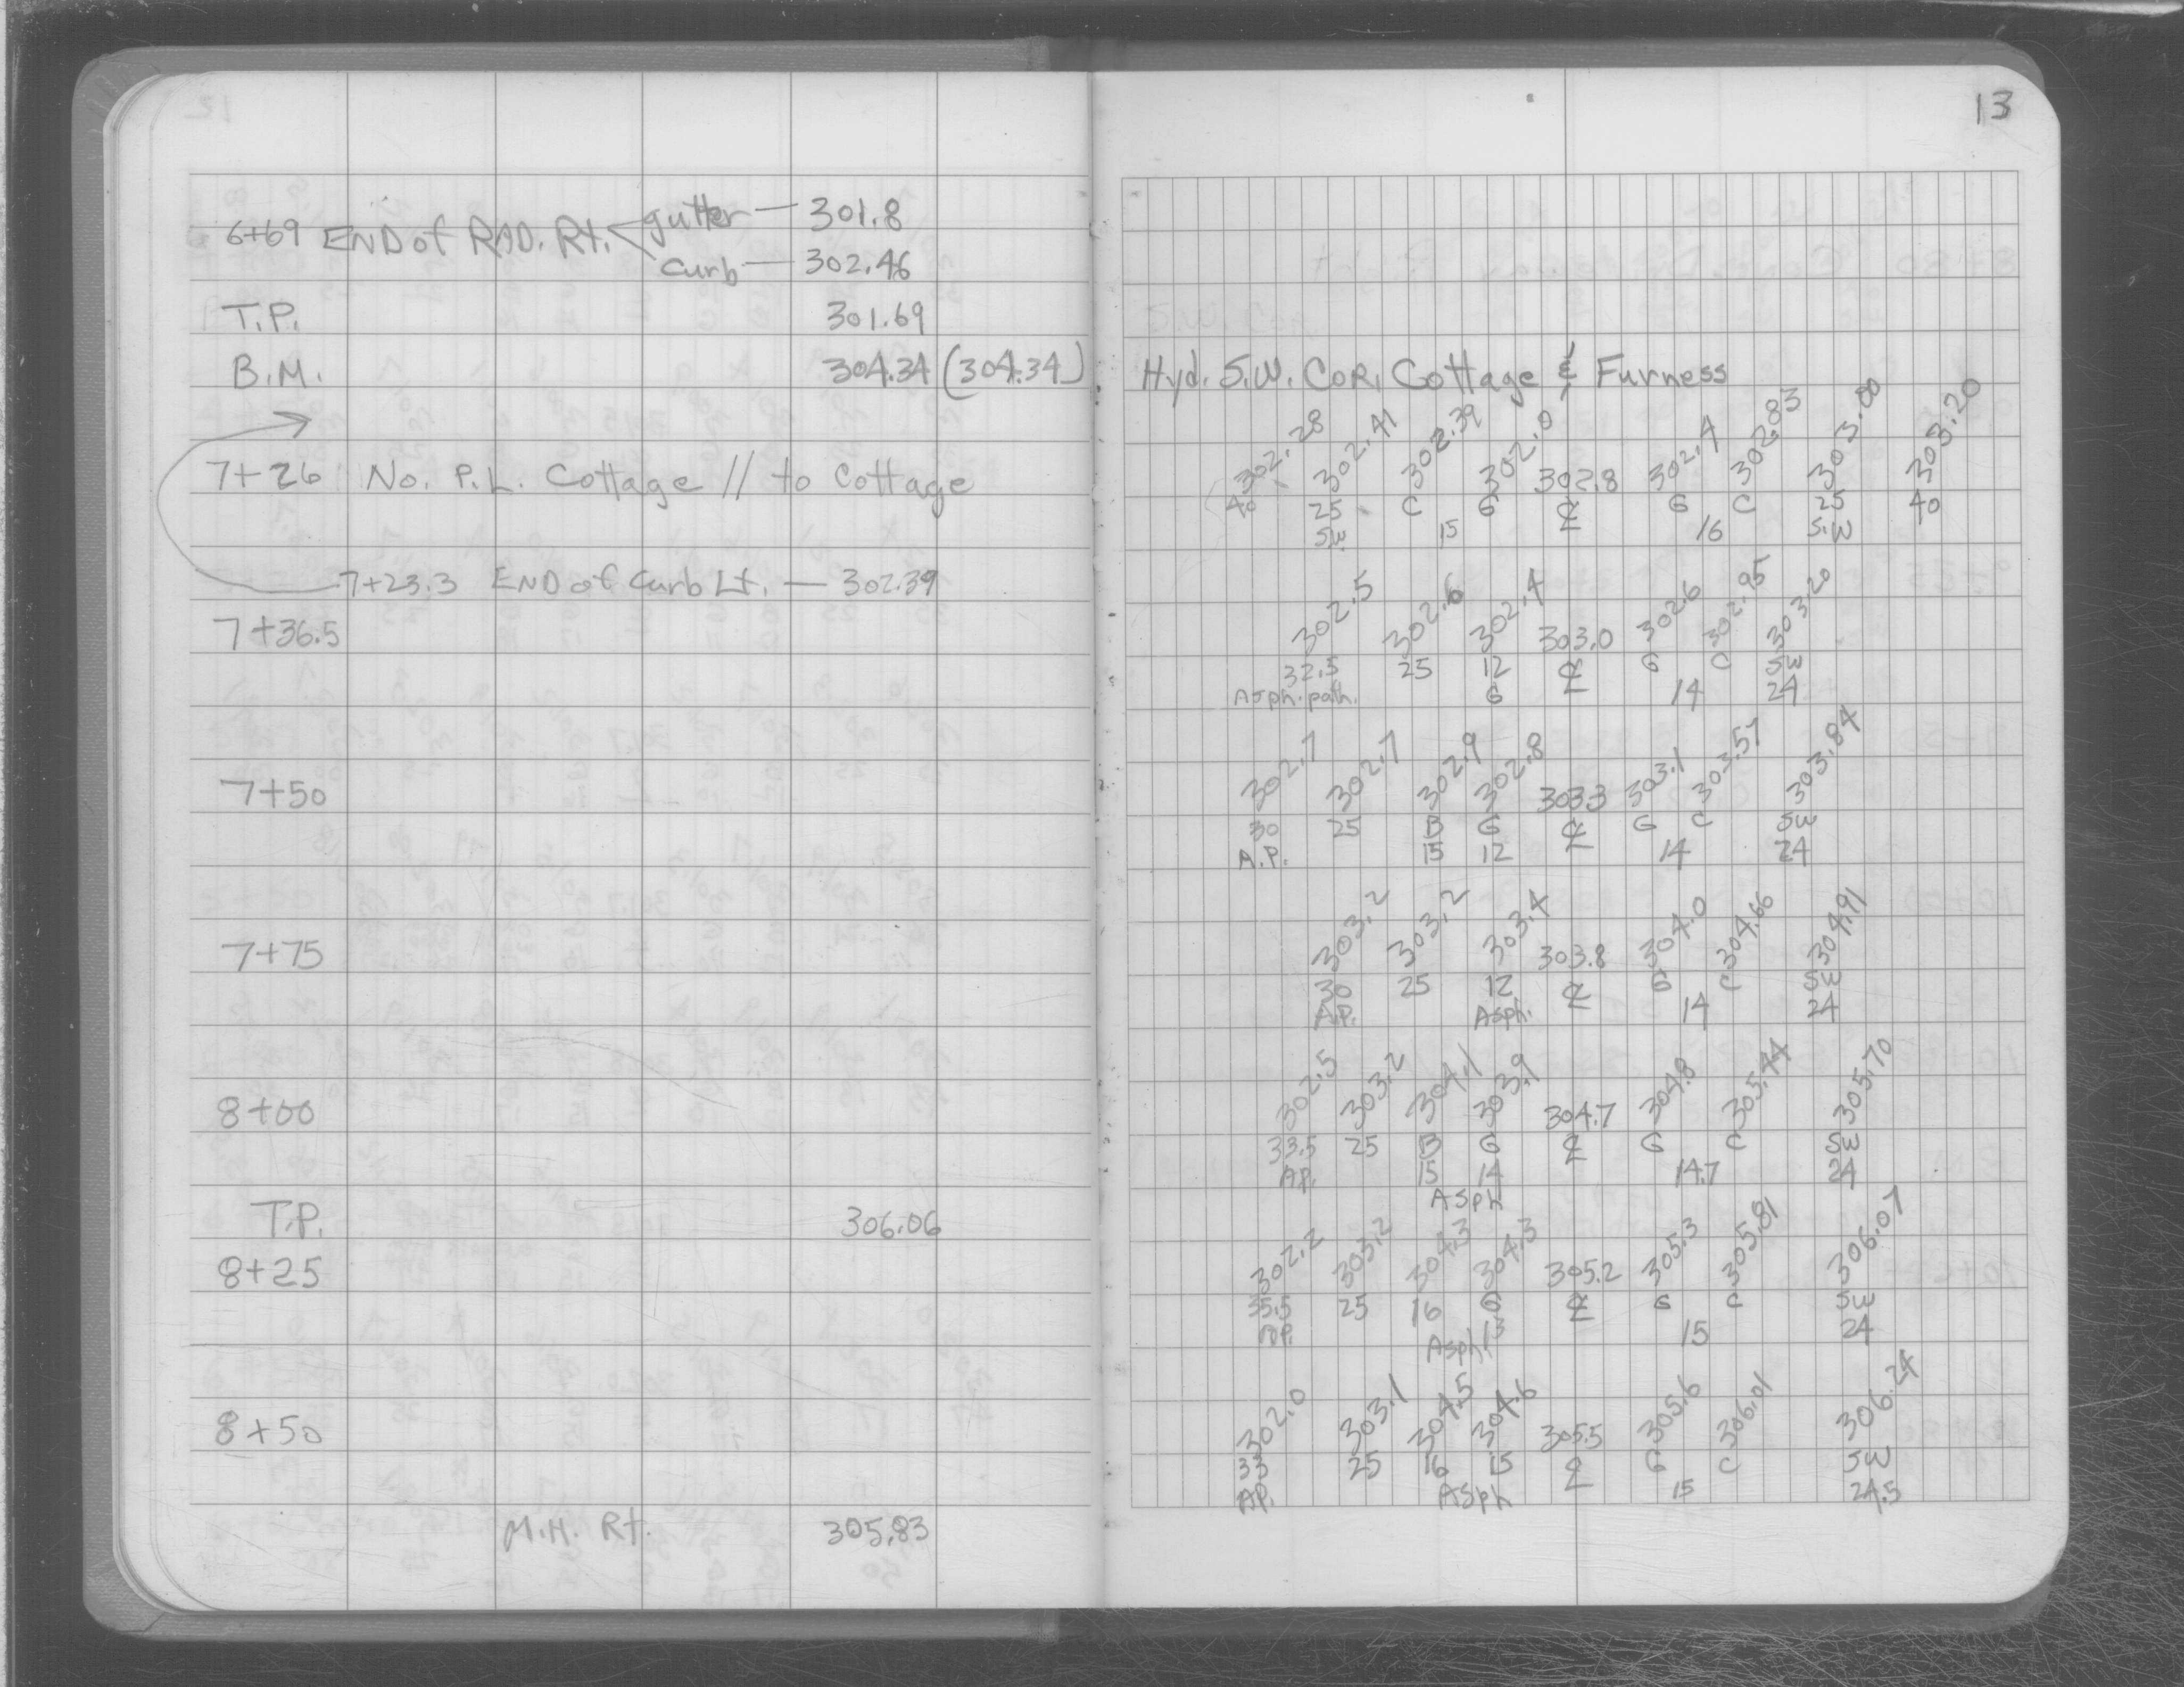 6+69 END of RAD. Rt. gutter — 301.8
curb — 302.46
T.P. 301.69
B.M. 304.34 (304.34)
7+26 No. P.L. Cottage // to Cottage
7+23.3 END of Curb Lt. — 302.39
7+36.5
7+50
7+75
8+00
T.P. 306.06
8+25
8+50
M.H. Rt. 305.83
13
Hyd. S.W. COR. Cottage & Furness
302.28 302.41 302.39 302.0 302.8 302.4 302.83 303.00 303.20
40 25 C G ℄ G C 25 40
SW 15 16 S.W
302.5 302.6 302.4 303.0 302.6 302.95 303.20
32.5 25 12 ℄ G C SW
Asph. path. G 14 24
302.7 302.7 302.9 302.8 303.3 303.1 303.57 303.84
30 25 B G ℄ G C SW
A.P. 15 12 14 24
303.2 303.2 303.4 303.8 304.0 304.66 304.91
30 25 12 ℄ G C SW
A.P. Asph. 14 24
302.5 303.2 304.1 303.9 304.7 304.8 305.44 305.70
33.5 25 B G ℄ G C SW
A.P. 15 14 14.7 24
Asph
302.2 303.2 304.3 304.3 305.2 305.3 305.81 306.07
35.5 25 16 G ℄ G C SW
A.P. Asph 13 15 24
302.0 303.1 304.5 304.6 305.5 305.6 306.01 306.24
33 25 16 15 ℄ G C SW
A.P. Asph 15 24.5